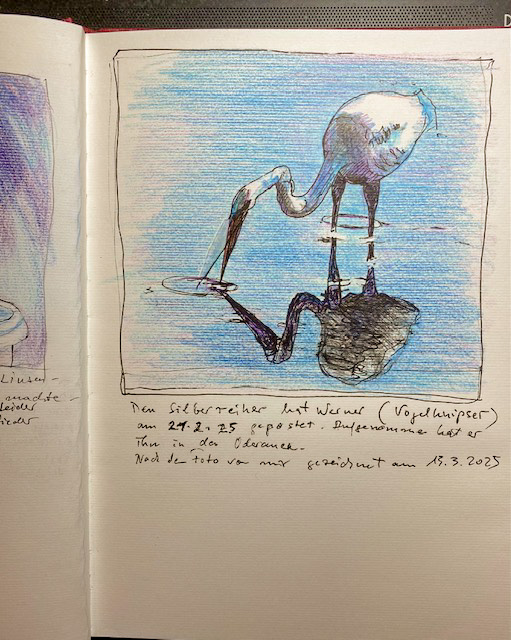 Linsen-
machte-
leider
wieder
Den Silberreiher hat Werner (Vogelknipser)
am 21.2.25 gepostet. Aufgenommen hat er
ihn in den Oderauen.
Nach dem Foto von mir gezeichnet am 13.3.2025